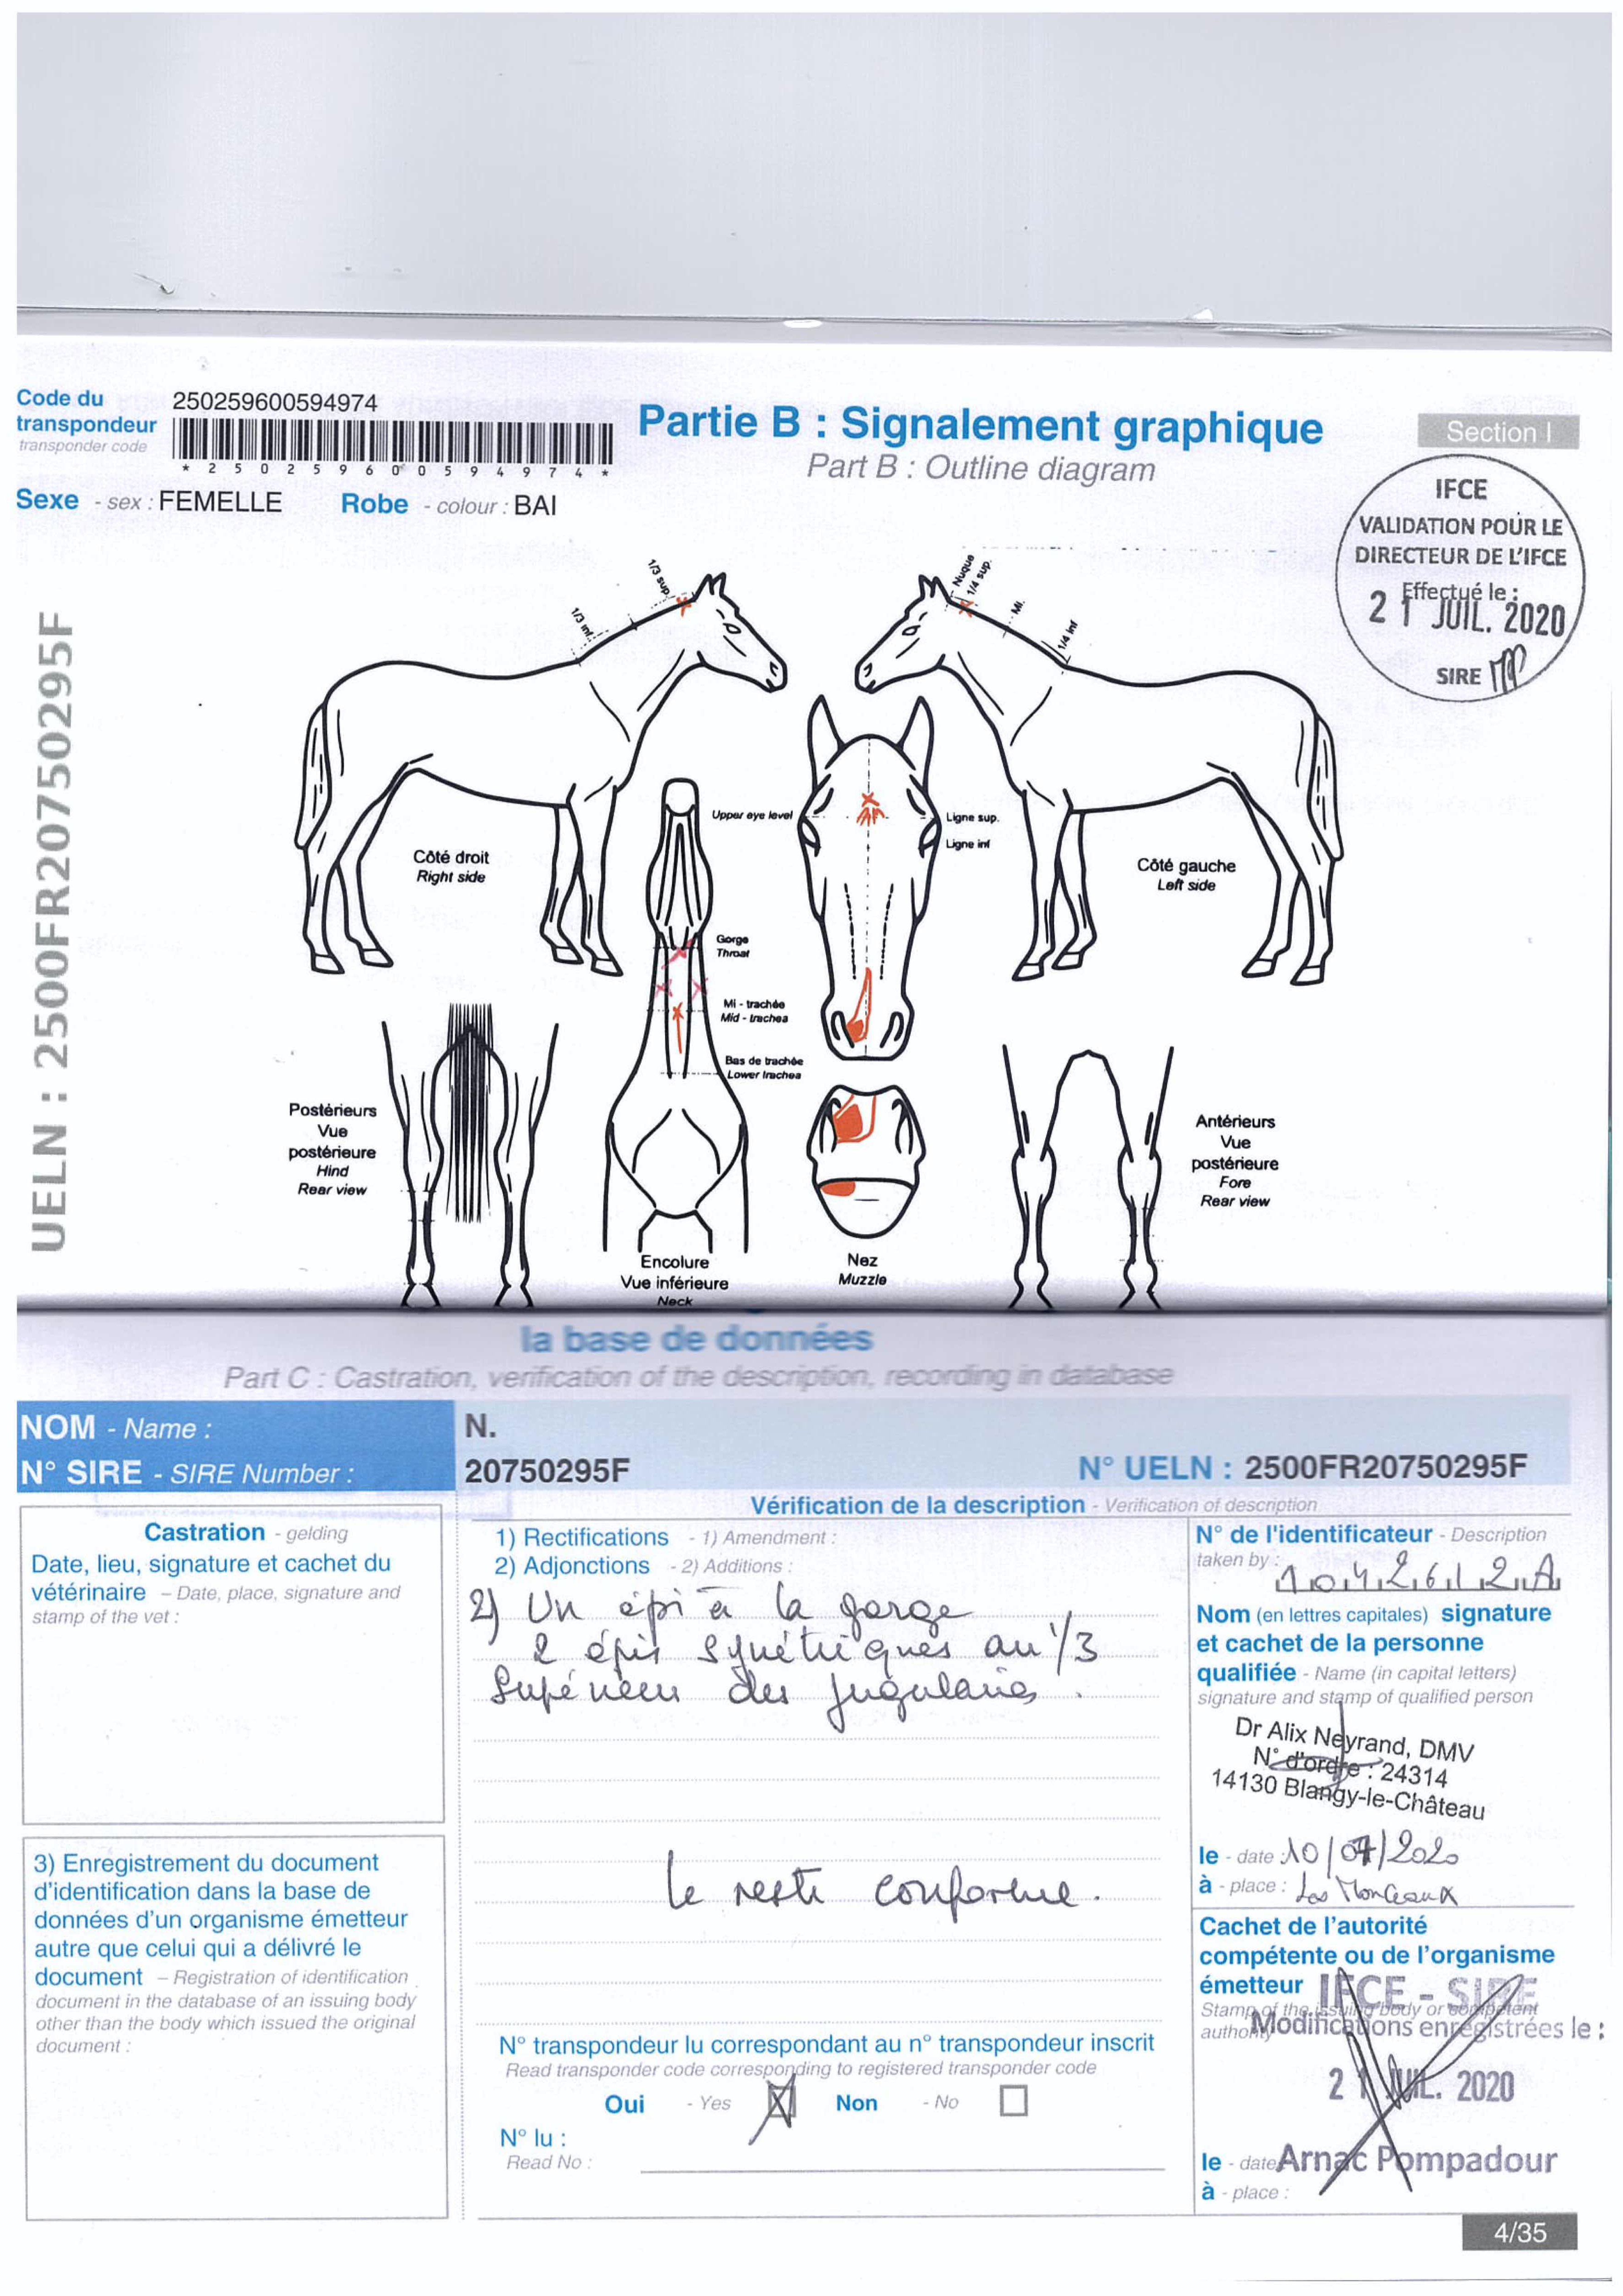 Code du
transpondeur
transponder code
250259600594974
* 2 5 0 2 5 9 6 0 0 5 9 4 9 7 4 *
Sexe - sex : FEMELLE
Robe - colour : BAI
Partie B : Signalement graphique
Part B : Outline diagram
Section I
IFCE
VALIDATION POUR LE
DIRECTEUR DE L'IFCE
Effectué le :
21 JUIL. 2020
SIRE
UELN : 2500FR20750295F
1/3 sup.
1/3 inf.
Nuque
1/4 sup.
Mi.
1/4 inf
Côté droit
Right side
Upper eye level
Ligne sup.
Ligne inf
Côté gauche
Left side
Gorge
Throat
Mi - trachée
Mid - trachea
Bas de trachée
Lower trachea
Postérieurs
Vue
postérieure
Hind
Rear view
Antérieurs
Vue
postérieure
Fore
Rear view
Encolure
Vue inférieure
Neck
Nez
Muzzle
la base de données
Part C : Castration, verification of the description, recording in database
NOM - Name :
N.
N° SIRE - SIRE Number :
20750295F
N° UELN : 2500FR20750295F
Vérification de la description - Verification of description
Castration - gelding
Date, lieu, signature et cachet du
vétérinaire – Date, place, signature and
stamp of the vet :
1) Rectifications - 1) Amendment :
2) Adjonctions - 2) Additions :
2) Un épi à la gorge
2 épis symétriques au 1/3
Supérieur des jugulaires.
le reste conforme.
3) Enregistrement du document
d'identification dans la base de
données d'un organisme émetteur
autre que celui qui a délivré le
document – Registration of identification
document in the database of an issuing body
other than the body which issued the original
document :
N° transpondeur lu correspondant au n° transpondeur inscrit
Read transponder code corresponding to registered transponder code
Oui - Yes
Non - No
N° lu :
Read No :
N° de l'identificateur - Description
taken by :
Nom (en lettres capitales) signature
et cachet de la personne
qualifiée - Name (in capital letters)
signature and stamp of qualified person
Dr Alix Neyrand, DMV
N° d'ordre : 24314
14130 Blangy-le-Château
le - date : 10/07/2020
à - place : Les Monceaux
Cachet de l'autorité
compétente ou de l'organisme
émetteur
Stamp of the issuing body or competent
authority
IFCE - SIRE
Modifications enregistrées le :
21 JUIL. 2020
le - date
Arnac Pompadour
à - place :
4/35